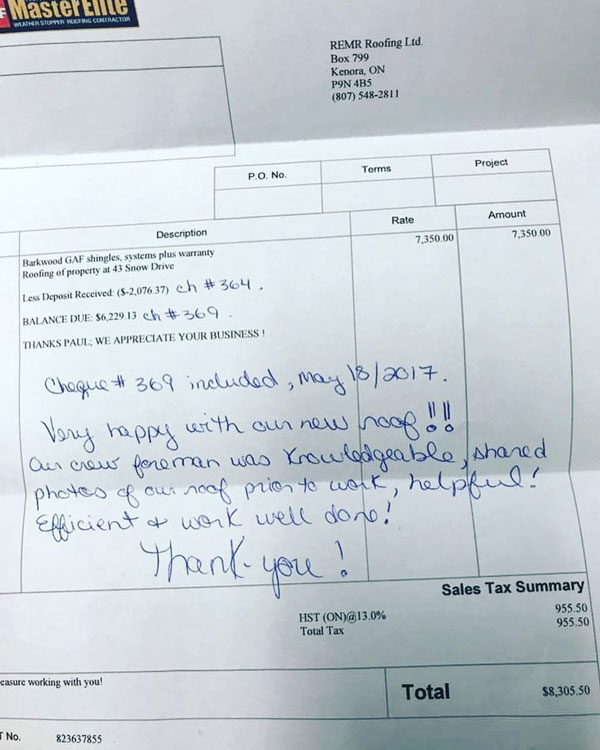 MasterElite
WEATHER STOPPER ROOFING CONTRACTOR
REMR Roofing Ltd.
Box 799
Kenora, ON
P9N 4B5
(807) 548-2811
P.O. No.
Terms
Project
Description
Rate
Amount
Barkwood GAF shingles, systems plus warranty
7,350.00
7,350.00
Roofing of property at 43 Snow Drive
Less Deposit Received: ($-2,076.37) ch #364.
BALANCE DUE: $6,229.13 ch #369.
THANKS PAUL; WE APPRECIATE YOUR BUSINESS !
Cheque # 369 included, May 18/2017.
Very happy with our new roof!!
Our crew foreman was knowledgeable, shared
photos of our roof prior to work, helpful!
Efficient & work well done!
Thank-you!
Sales Tax Summary
HST (ON)@13.0%
955.50
Total Tax
955.50
easure working with you!
Total
$8,305.50
T No.
823637855